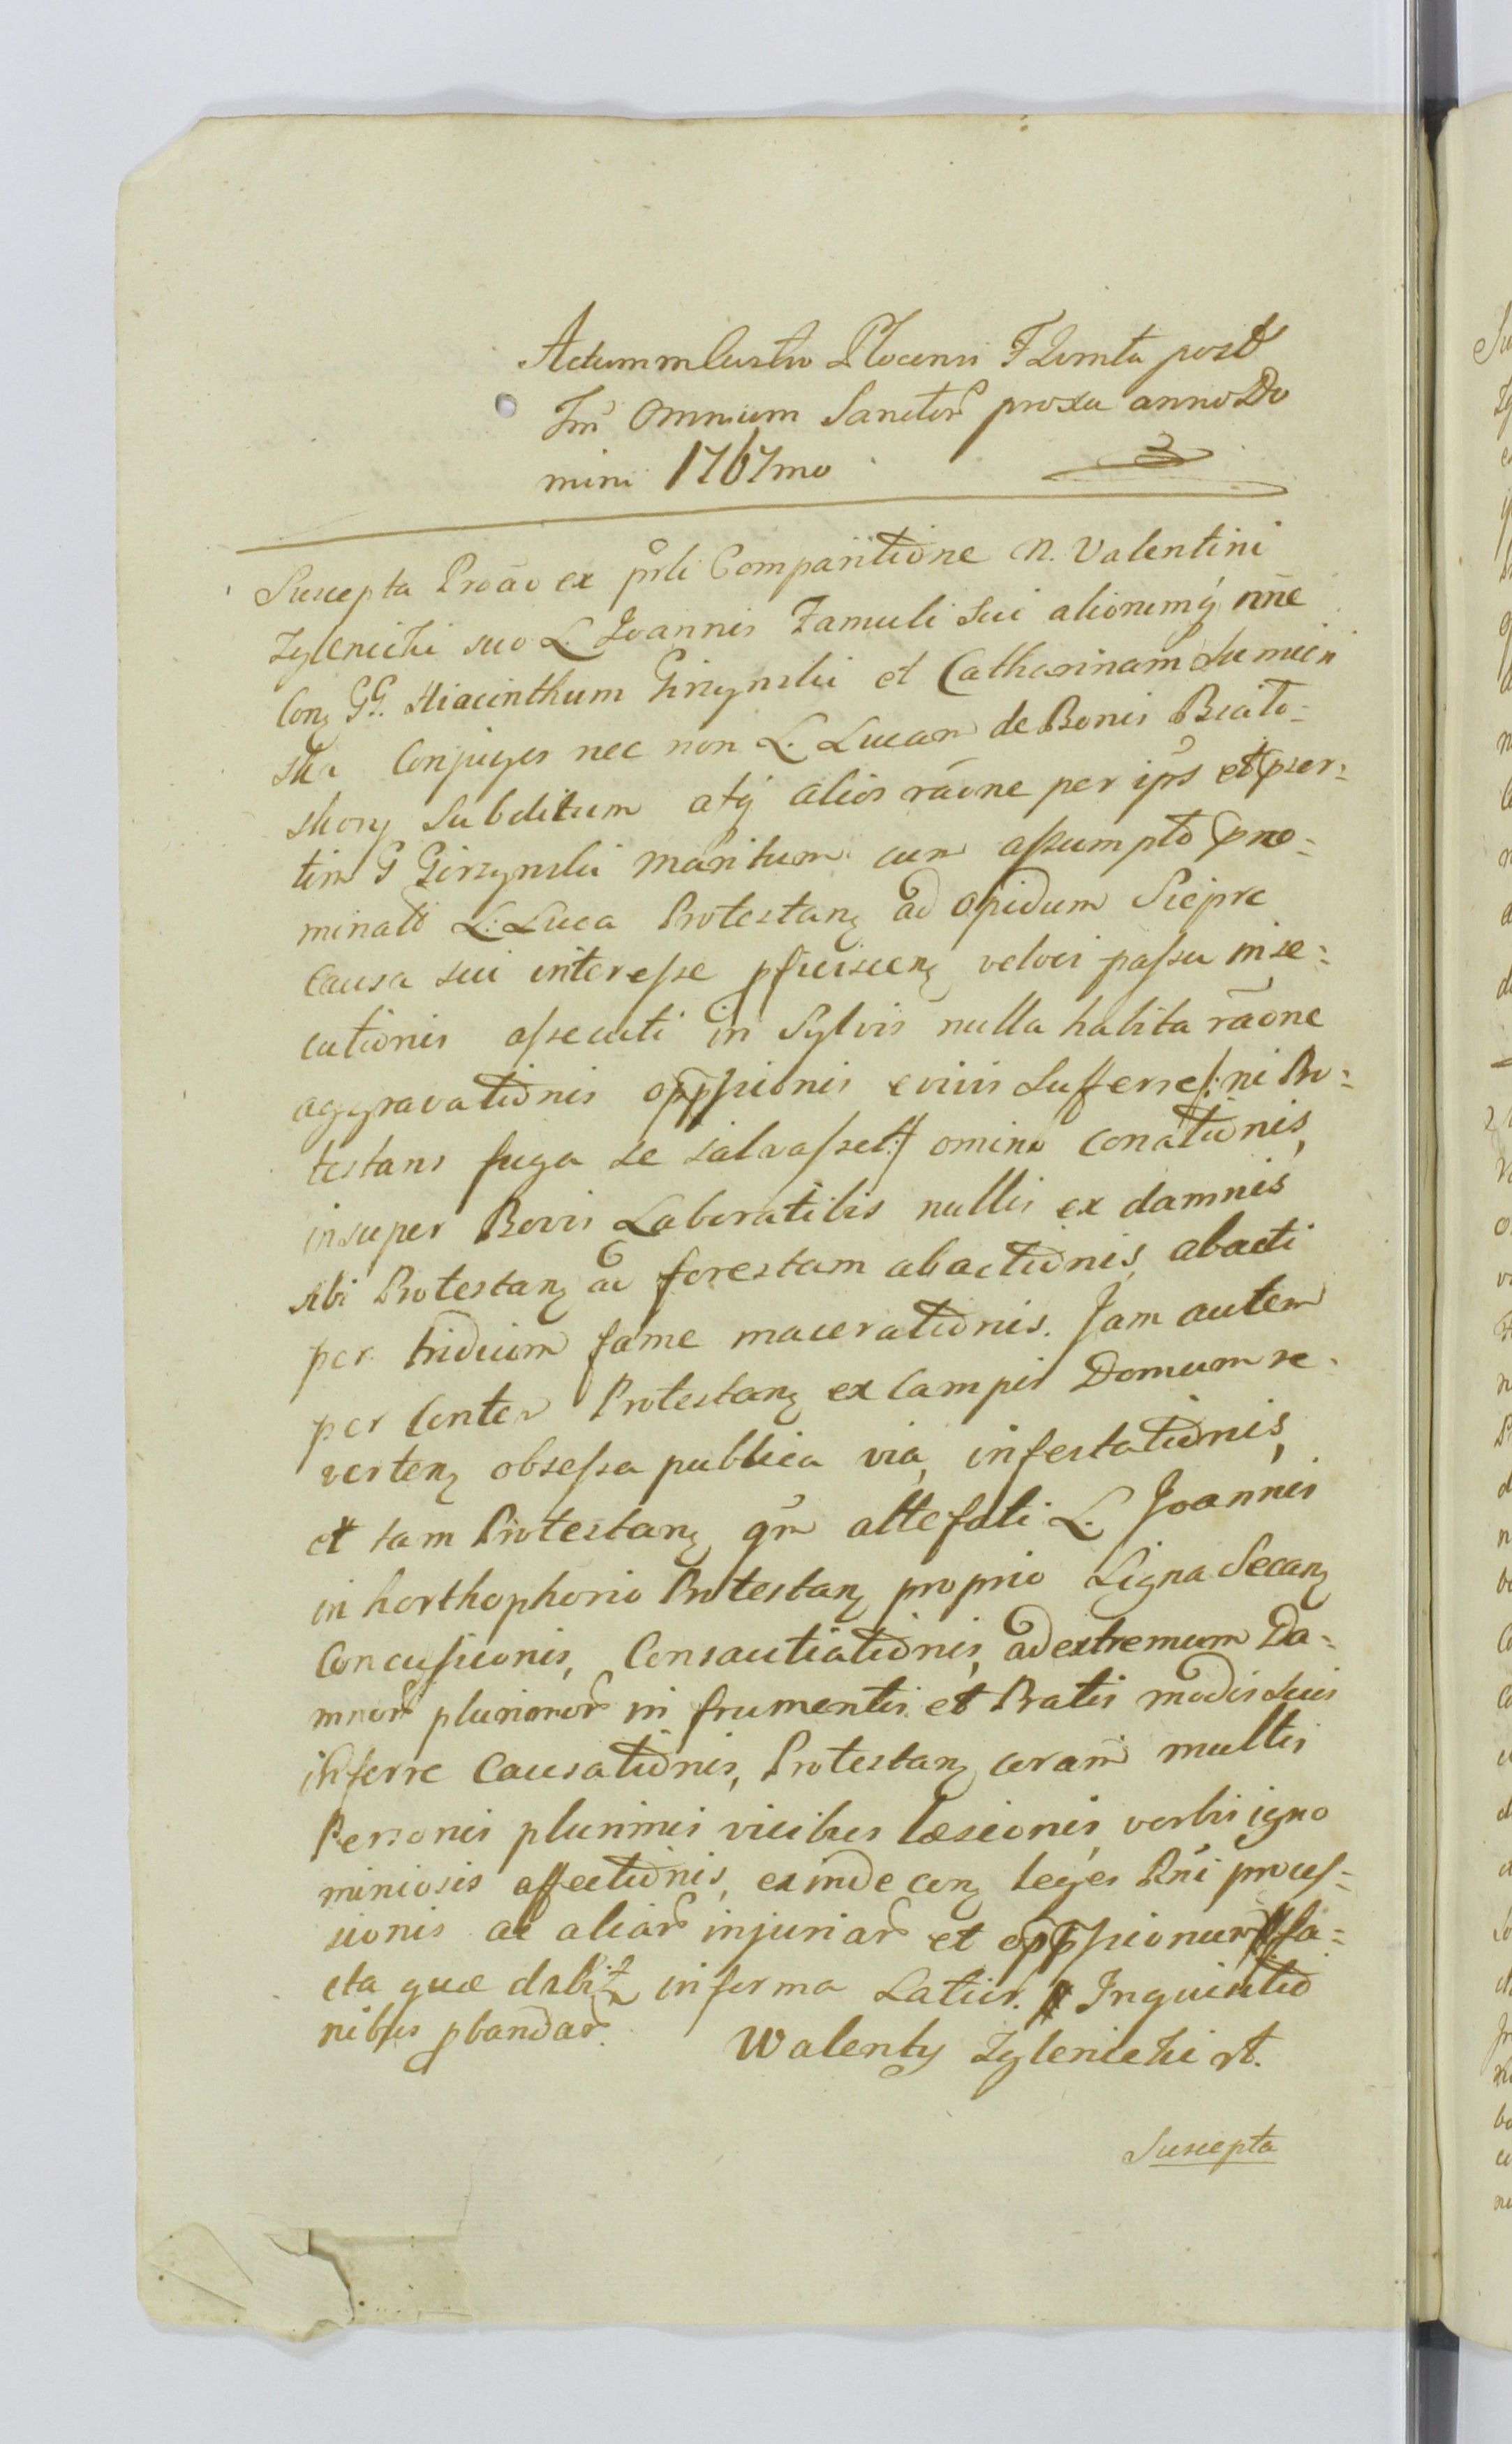 Actum in Castro Plocensi F 2. omta post
Fm̃ Omnium Sanctor proxa anno Do
mini 1767mo
Suscepta Proao ex prli Comparitione N. Valentini
Zglenicki suo L. Joannis Famuli sui aliorumq́ nñe
Conȝ GG. Hiacinthum Girzynski et Catharinam Sumin
ska Conjuges nec non L. Lucam de Bonis Biało=
skory subditum atq́ alios raõne per ips et pser=
tim G Girzynski maritum cum assumpto pno=
minato L: Luca Protestanȝ ad opidum Sieprc
causa sui interesse pficiscenȝ veloci passu inse=
cutionis assecuti in Sylvis nulla habita rãone
aggravationis oppssionis e vivis sufferre /: ni Pro=
testans fuga se salvasset :/ omino conationis,
insuper Bovis Laboratilis nullis ex damnis
sibi Protestanȝ ad forestam abactionis, abacti
per triduum fame macerationis. Jam autem
per Conter Protestanȝ ex Campis Domum re=
vertenȝ obsessa publica via, infestationis,
et tam Protestanȝ qm̃ altefati L. Joannis
in horthophorio Protestanȝ proprio Ligna Secanȝ
Concussionis, Consautiationis, ad extremum Da=
mnor plurimor in frumentis et Pratis modis suis
inferre Causationis, Protestanȝ coram multis
Personis plurimis vicibus læsionis, verbis igno
miniosis affectionis, exinde conȝ leges Rni proces=
sionis ac aliar injuriar et oppssionum fa=
cta quæ dabitȝ in forma Latior. Inquisitio
nibus pbandar.
Walenty Zglenicki rt.
Suscepta